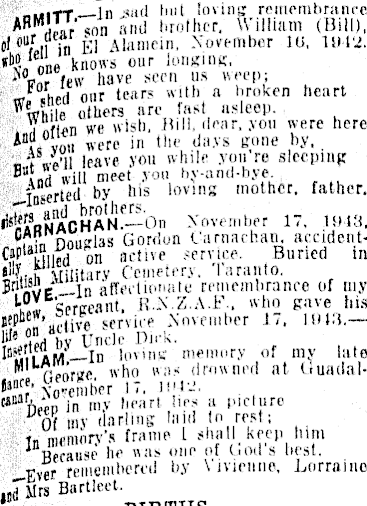 ARMITT.—In sad but loving remembrance
of our dear son and brother, William (Bill),
who fell in El Alamein, November 16, 1942.
No one knows our longing,
For few have seen us weep;
We shed our tears with a broken heart
While others are fast asleep.
And often we wish, Bill, dear, you were here
As you were in the days gone by,
But we'll leave you while you're sleeping
And will meet you by-and-bye.
—Inserted by his loving mother, father,
sisters and brothers.
CARNACHAN.—On November 17, 1943,
Captain Douglas Gordon Carnachan, accident-
ally killed on active service. Buried in
British Military Cemetery, Taranto.
LOVE.—In affectionate remembrance of my
nephew, Sergeant, R.N.Z.A.F., who gave his
life on active service November 17, 1943.—
Inserted by Uncle Dick.
MILAM.—In loving memory of my late
fiance, George, who was drowned at Guadal-
canar, November 17, 1942.
Deep in my heart lies a picture
Of my darling laid to rest;
In memory's frame I shall keep him
Because he was one of God's best.
—Ever remembered by Vivienne, Lorraine
and Mrs Bartleet.
BIRTHS